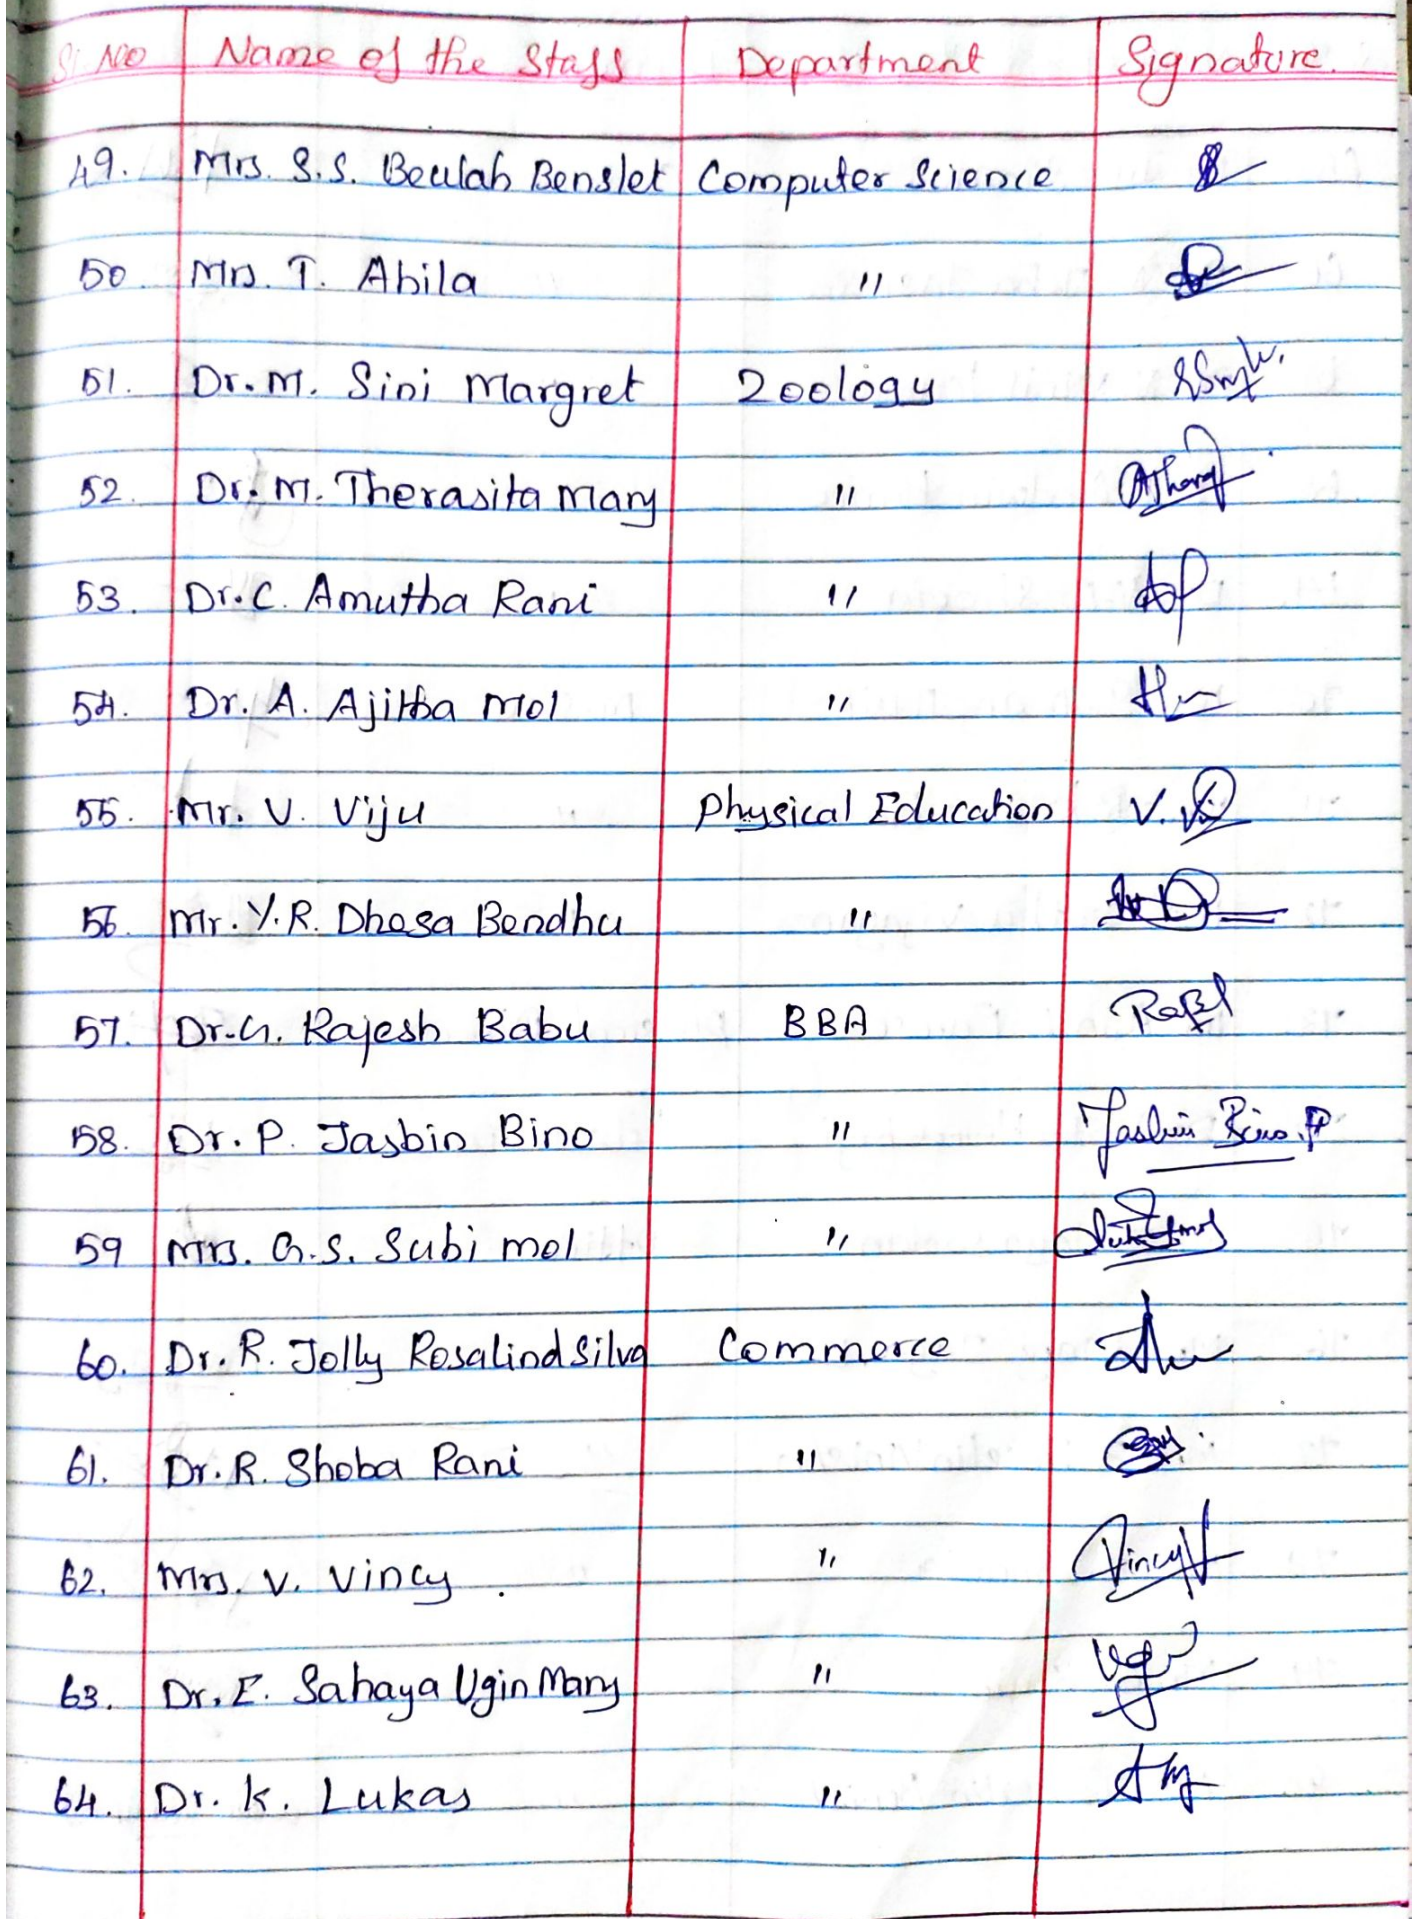 Sl. No Name of the Staff Department Signature.
49. Mrs. S.S. Beulah Benslet Computer Science
50. Mrs. T. Abila "
51. Dr. M. Sini Margret Zoology
52. Dr. M. Therasita Mary "
53. Dr. C. Amutha Rani "
54. Dr. A. Ajitha Mol "
55. Mr. V. Viju Physical Education V.
56. Mr. Y.R. Dhasa Bendhu "
57. Dr. G. Rajesh Babu BBA
58. Dr. P. Jasbin Bino " Jasbin Bino. P
59 Mrs. G.S. Subi mol "
60. Dr. R. Jolly Rosalind Silva Commerce
61. Dr. R. Shoba Rani "
62. Mrs. V. Vincy. " Vincy
63. Dr. E. Sahaya Ugin Mary "
64. Dr. K. Lukas "